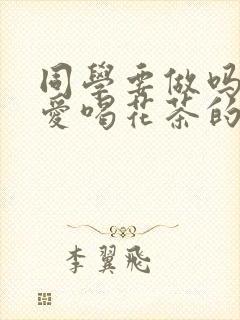 同學要做嗎
愛喝花茶的
李翼飛